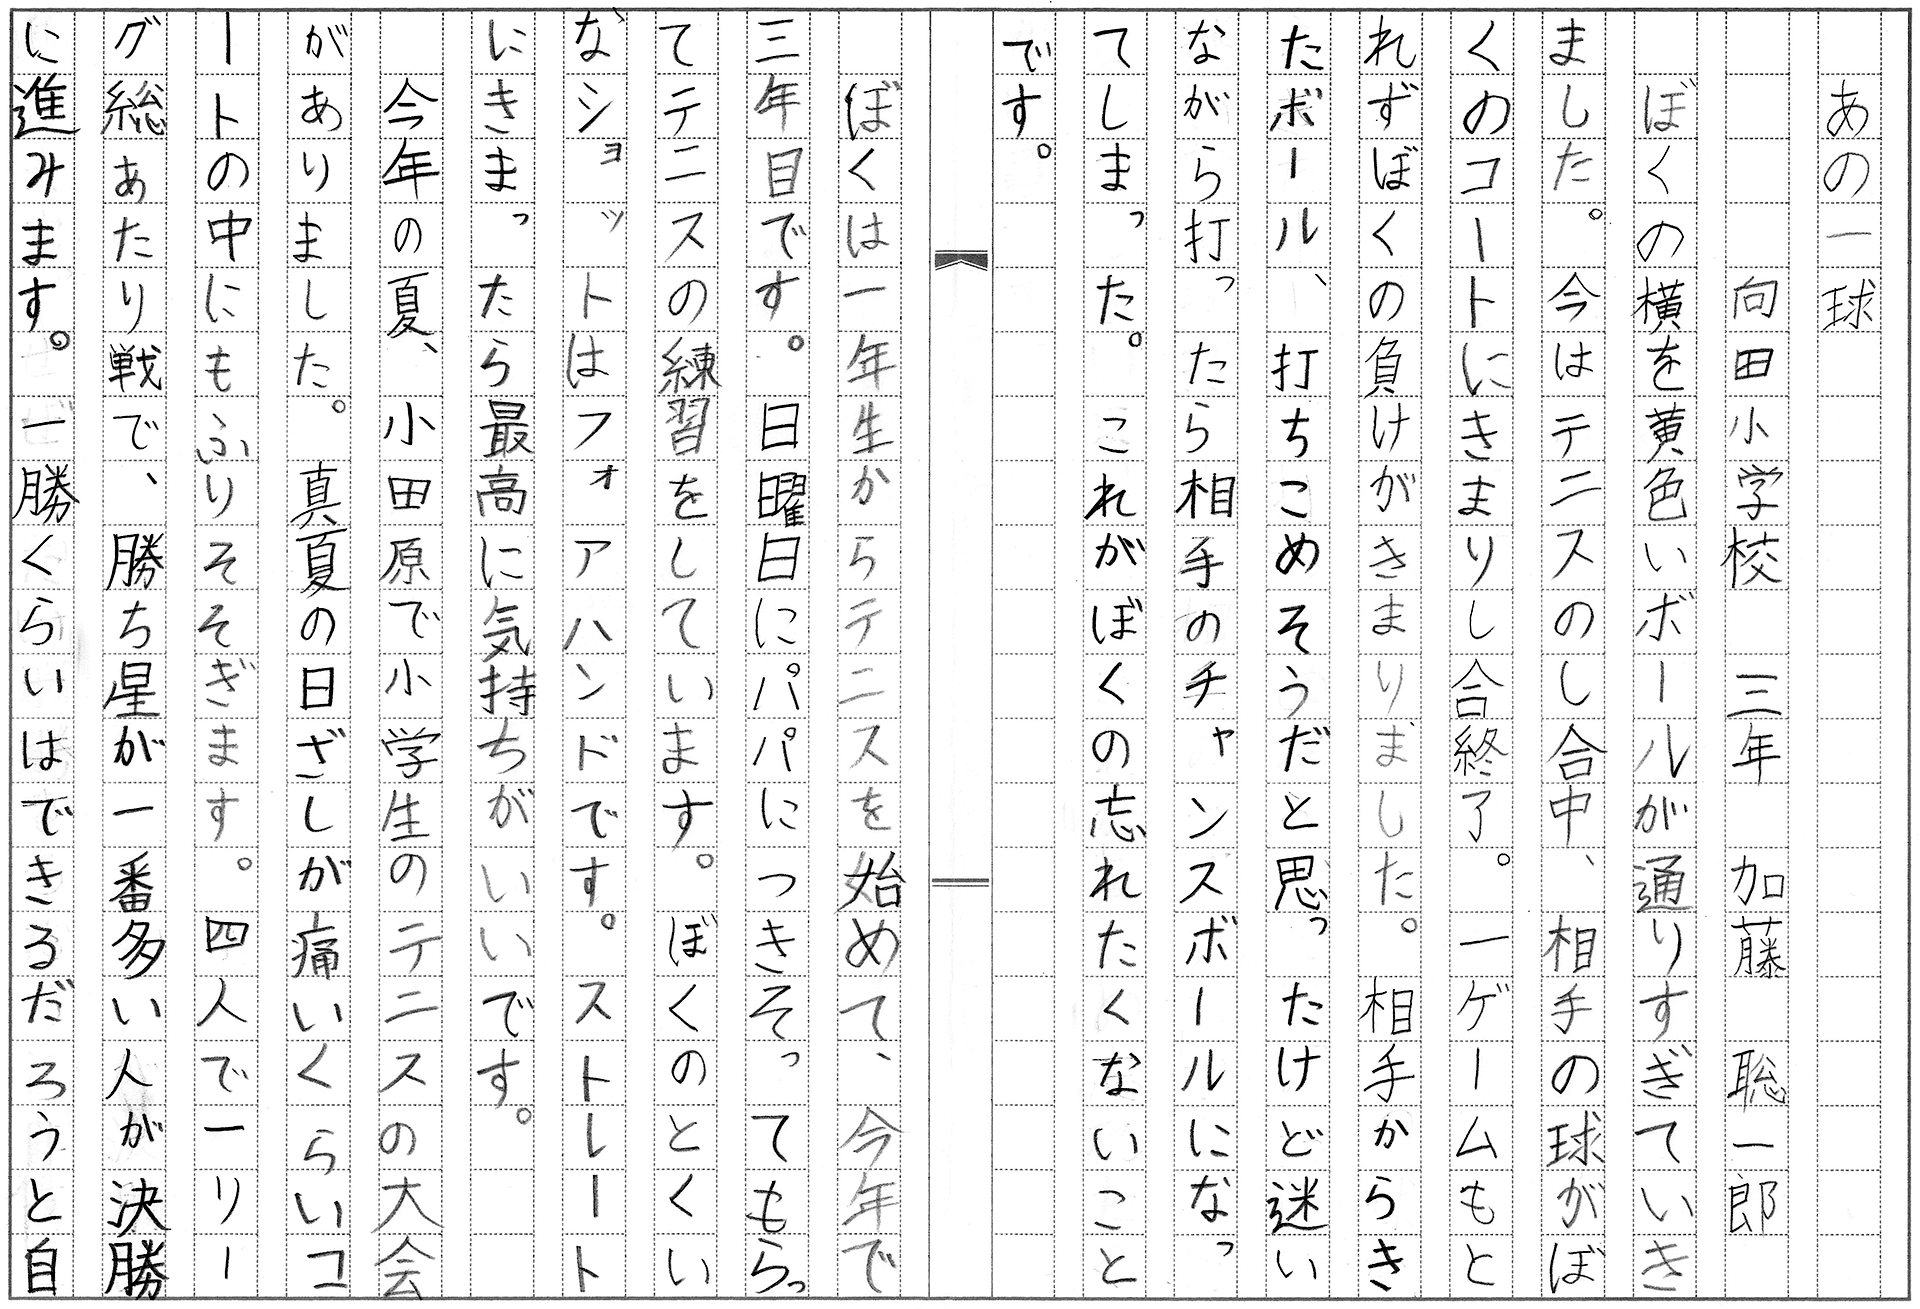 あの一球
向田小学校　三年　加藤　聡一郎
ぼくの横を黄色いボールが通りすぎていき
ました。今はテニスのし合中、相手の球がぼ
くのコートにきまりし合終了。一ゲームもと
れずぼくの負けがきまりました。相手からき
たボール、打ちこめそうだと思ったけど迷い
ながら打ったら相手のチャンスボールになっ
てしまった。これがぼくの忘れたくないこと
です。
ぼくは一年生からテニスを始めて、今年で
三年目です。日曜日にパパにつきそってもらっ
てテニスの練習をしています。ぼくのとくい
なショットはフォアハンドです。ストレート
にきまったら最高に気持ちがいいです。
今年の夏、小田原で小学生のテニスの大会
がありました。真夏の日ざしが痛いくらいコ
ートの中にもふりそそぎます。四人で一リー
グ総あたり戦で、勝ち星が一番多い人が決勝
に進みます。一勝くらいはできるだろうと自